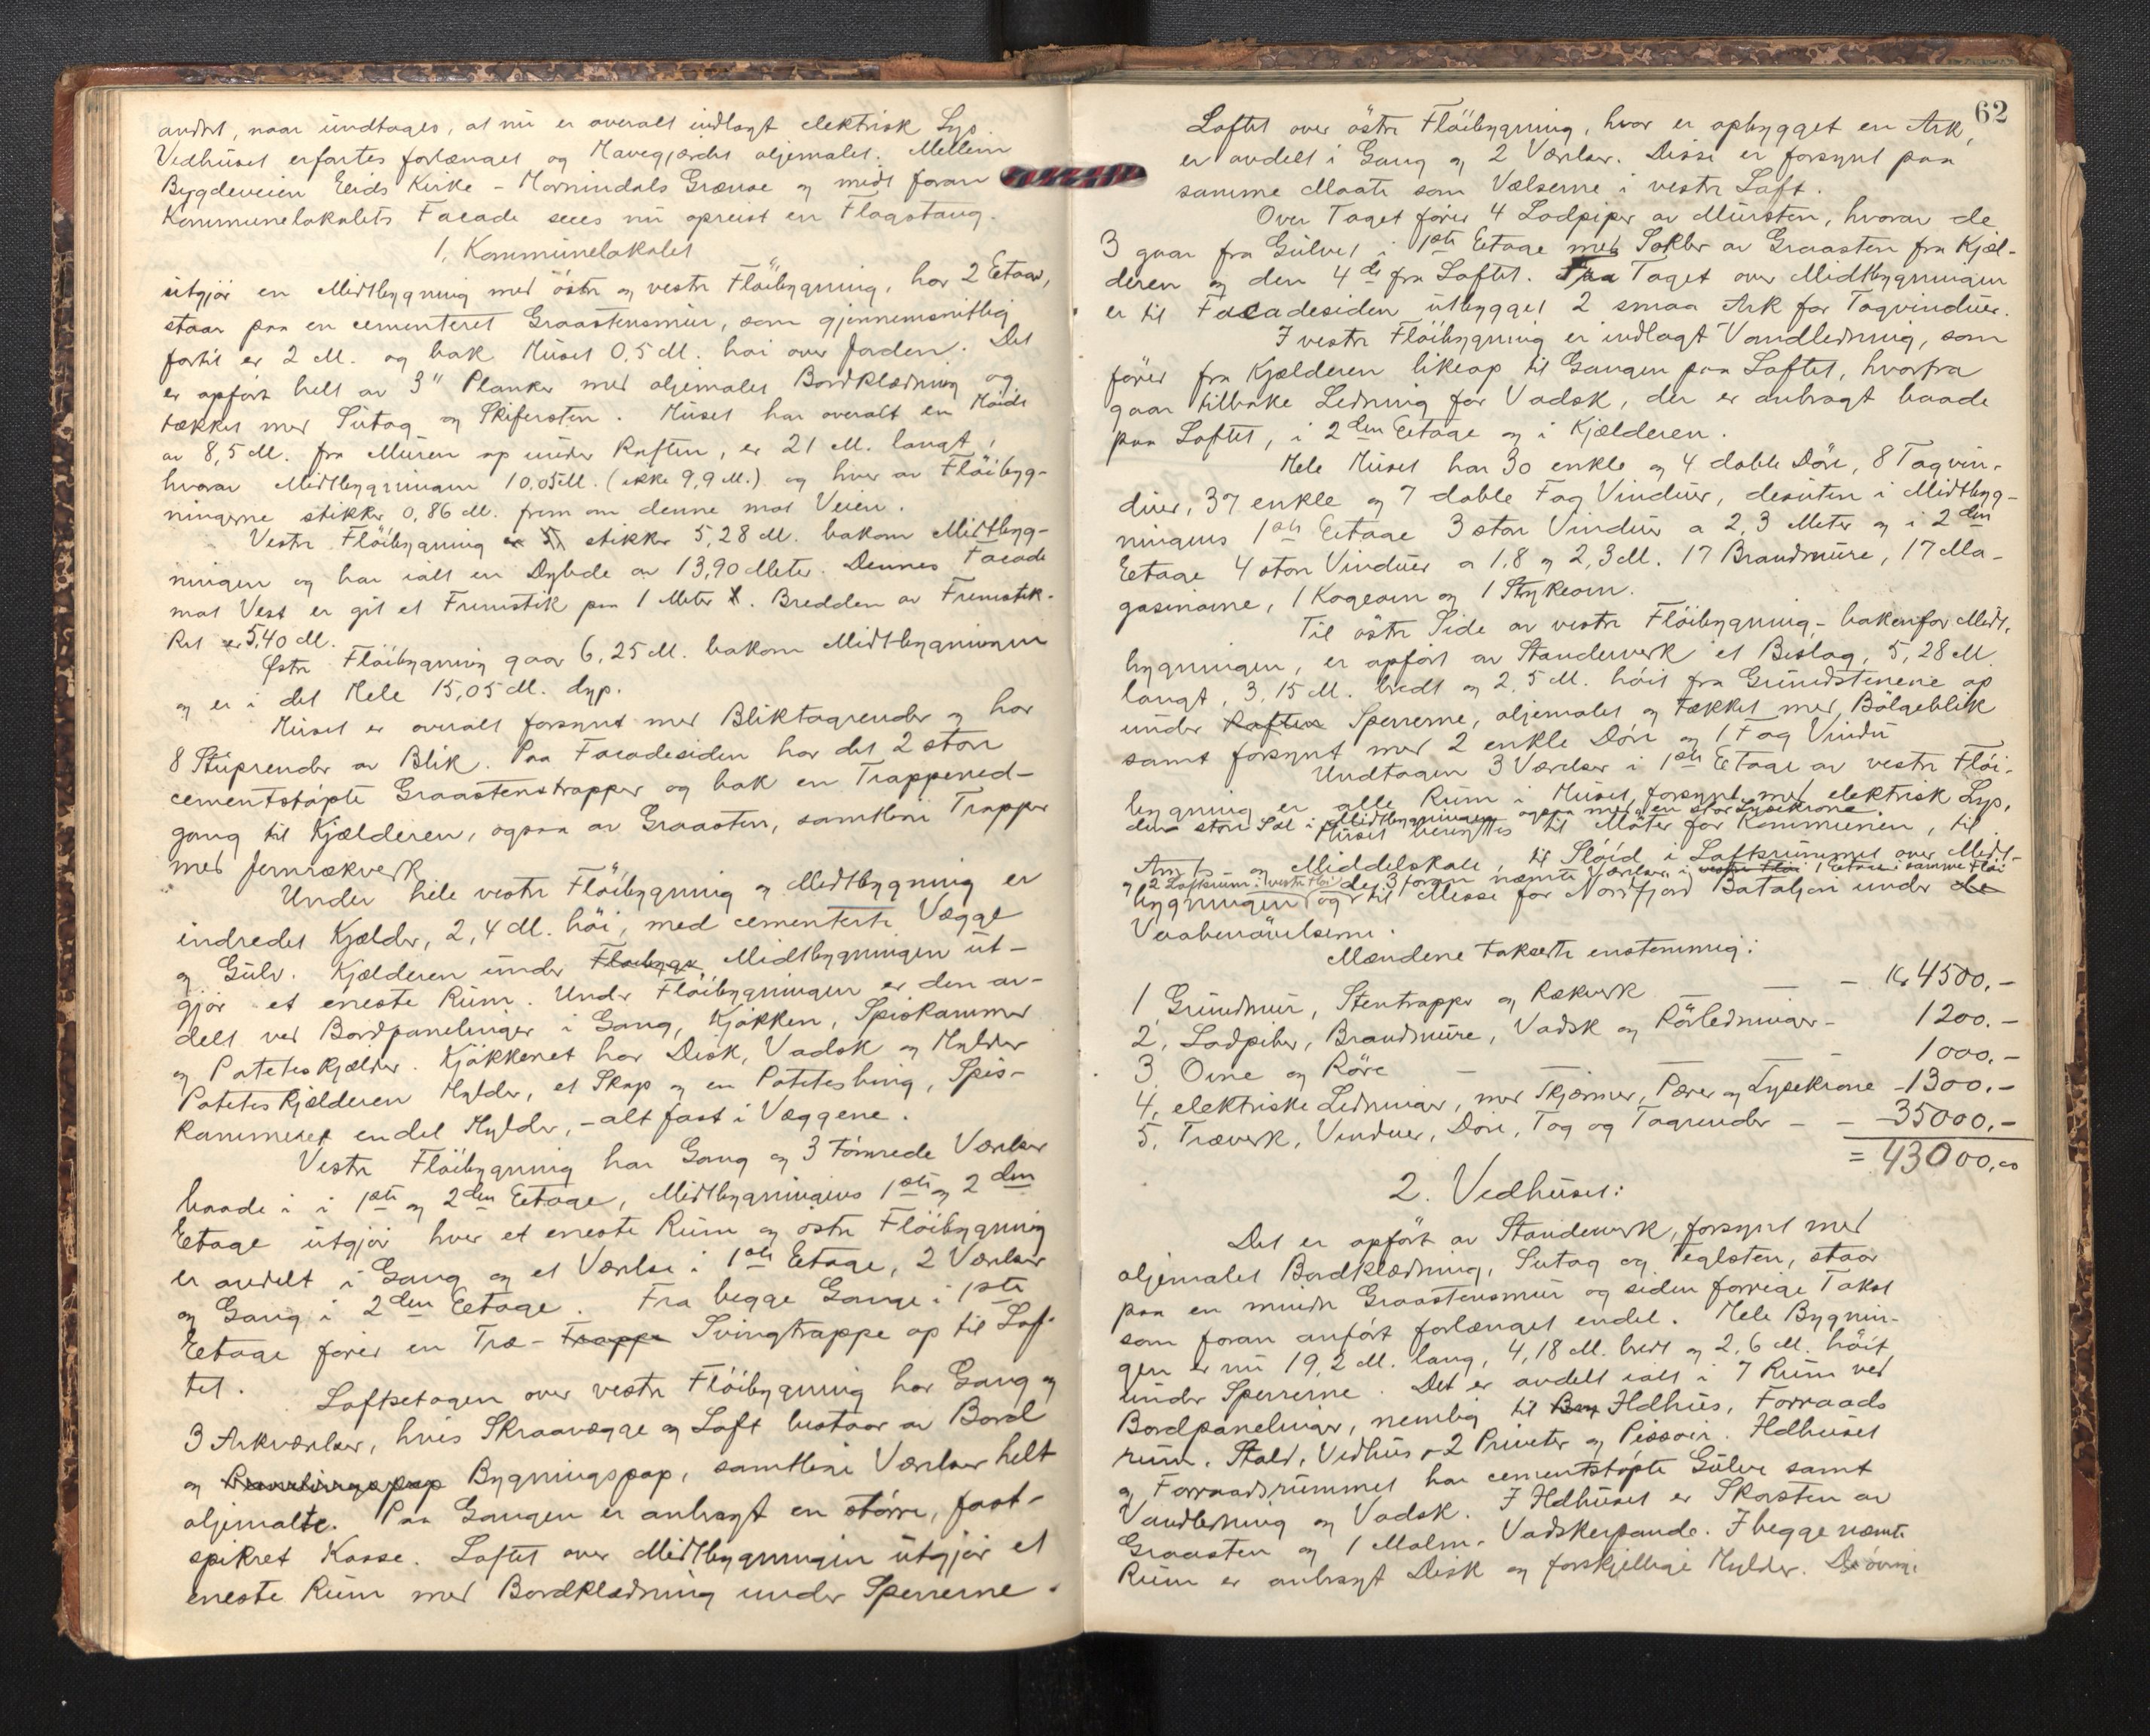 andet, naar undtages, at nu er overalt indlagt elektrisk Lys.
Vedhuset erfartes forlænget og Havegjærdet oljemalet. Mellem
Bygdeveien Eids Kirke - Hornindals Grænse og midt foran
Kommunelokalets Facade sees nu opreist en Flagstang.
1, Kommunelokalet
utgjør en Midtbygning med østre og vestre Fløibygning, har 2 Etager,
staar paa en cementeret Graastensmur, som gjennemsnitlig
fortil er 2 M. og bak Huset 0,5 M. høi over Jorden. Det
er opført helt av 3" Planker med oljemalet Bordklædning og
tækket med Sutag og Skifersten. Huset har overalt en Høide
av 8,5 M. fra Muren op under Raften, er 21 M. langt,
hvorav Midtbygningen 10,05 M. (ikke 9,9 M.) og hver av Fløibyg-
ningerne stikker 0,86 M. frem om denne mot Veien.
Vestre Fløibygning stikker 5,28 M. bakom Midtbyg-
ningen og har ialt en Dybde av 13,90 Meter. Dennes Facade
mot Vest er git et Fremstik paa 1 Meter. Bredden av Fremstik-
ket er 5,40 M.
Østre Fløibygning gaar 6,25 M. bakom Midtbygningen
og er i det Hele 15,05 M. dyp.
Huset er overalt forsynt med Bliktagrender og har
8 Stuprender av Blik. Paa Facadesiden har det 2 store
cementstøpte Graastenstrapper og bak en Trappened-
gang til Kjælderen, ogsaa av Graasten, samtlige Trapper
med Jernrækverk
Under hele vestre Fløibygning og Midtbygning er
indredet Kjælder, 2,4 M. høi, med cementerte Vægge
og Gulv. Kjælderen under Midtbygningen ut-
gjør et eneste Rum. Under Fløibygningen er den av-
delt ved Bordpanelinger i Gang, Kjøkken, Spiskammer
og Poteteskjælder. Kjøkkenet har Disk, Vadsk og Hylder
Poteteskjælderen Hylder, et Skap og en Potetesbing, Spis-
kammeret endel Hylder, - alt fast i Væggene.
Vestre Fløibygning har Gang og 3 tømrede Værelser
baade i i 1ste og 2den Etage, Midtbygningens 1ste og 2den
Etage utgjør hver et eneste Rum og østre Fløibygning
er avdelt i Gang og et Værelse i 1ste Etage, 2 Værelser
og Gang i 2den Etage. Fra begge Gange i 1ste
Etage fører en Træ- Trappe Svingtrappe op til Lof-
tet.
Loftsetagen over vestre Fløibygning har Gang og
3 Arkværelser, hvis Skraavægge og Loft bestaar av Bord
og Bygningspap, samtlige Værelser helt
oljemalte. Paa Gangen er anbragt en større, fast-
spikret Kasse. Loftet over Midtbygningen utgjør et
eneste Rum med Bordklædning under Sperrerne.
62
Loftet over østre Fløibygning, hvor er opbygget en Ark,
er avdelt i Gang og 2 Værelser. Disse er forsynt paa
samme Maate som Værelserne i vestre Loft.
Over Taget fører 4 Lodpiper av Mursten, hvorav de
3 gaar fra Gulvet i 1ste Etage med Sokler av Graasten fra Kjæl-
deren og den 4de fra Loftet. Fra Taget over Midtbygningen
er til Facadesiden utbygget 2 smaa Ark for Tagvinduer.
I vestre Fløibygning er indlagt Vandledning, som
fører fra Kjælderen likeop til Gangen paa Loftet, hvorfra
gaar tilbake Ledning for Vadsk, der er anbragt baade
paa Loftet, i 2den Etage og i Kjælderen.
Hele Huset har 30 enkle og 4 doble Døre, 8 Tagvin-
duer, 37 enkle og 7 doble Fag Vinduer, desuten i Midtbyg-
ningens 1ste Etage 3 store Vinduer a 2,3 Meter og i 2den
Etage 4 store Vinduer a 1,8 og 2,3 M. 17 Brandmure, 17 Ma-
gasinovne, 1 Kogeovn og 1 Strykeovn.
Til østre Side av vestre Fløibygning, - bakenfor Midt-
bygningen, er opført av Standerverk et Bislag, 5,28 M.
langt, 3,15 M. bredt og 2,5 M. høit fra Grundstenene op
under Raften Sperrerne, oljemalet og tækket med Bølgeblik
samt forsynt med 2 enkle Døre og 1 Fag Vindu
Undtagen 3 Værelser i 1ste Etage av vestre Fløi-
bygning er alle Rum i Huset forsynt med elektrisk Lys,
den store Sal i Midtbygningen ogsaa med en stor Lysekrone
Huset benyttes til Møter for Kommunen, til
Amts og Middelskole, til Sløid i Loftsrummet over Midt-
og 2 Loftsrum i vestre Fløi de 3 foran nævnte Værelser i vestre Fløi 1 Etage i samme Fløi
bygningen og til Messe for Nordfjord Bataljon under de
Vaabenøvelserne.
Mændene takserte enstemmig:
1, Grundmur, Stentrapper og Rækverk — — — Kr 4500,-
2, Lodpiber, Brandmure, Vadsk og Rørledninger - 1200.-
3, Ovne og Rør — — — 1000,-
4, elektriske Ledninger, med Skjærmer, Pærer og Lysekrone - 1300.-
5, Træverk, Vinduer, Døre, Tag og Tagrender - - 35000,-
= 43000,00
2. Vedhuset:
Det er opført av Standerverk, forsynt med
oljemalet Bordklædning, Sutag og Teglsten, staar
paa en mindre Graastensmur og siden forrige Takst
som foran anført forlænget endel. Hele Bygnin-
gen er nu 19,2 M. lang, 4,18 M. bredt og 2,6 M. høit
under Sperrerne. Det er avdelt ialt i 7 Rum ved
Bordpanelinger, nemlig til Ildhus, Forraads
rum, Stald, Vedhus, 2 Priveter og Pissoir. Ildhuset
og Forraadsrummet har cementstøpte Gulve samt
Vandledning og Vadsk. I Ildhuset er Skorsten av
Graasten og 1 Malm- Vadskerpande. I begge nævnte
Rum er anbragt Disk og forskjellige Hylder. De øvrige